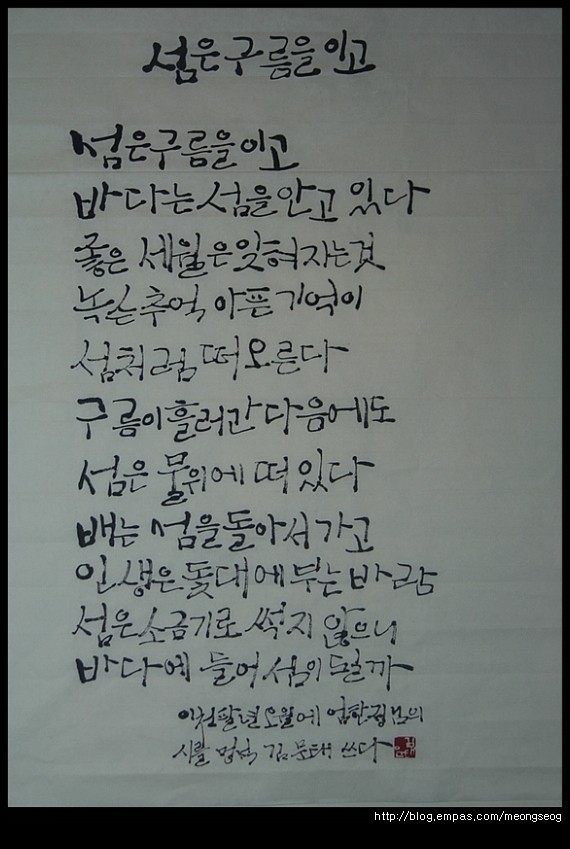 섬은 구름을 이고
섬은 구름을 이고
바다는 섬을 안고 있다
좋은 세월은 잊혀지는 것
녹슨 추억 아픈 기억이
섬처럼 떠오른다
구름이 흘러간 다음에도
섬은 물위에 떠 있다
배는 섬을 돌아서 가고
인생은 돛대에 부는 바람
섬은 소금기로 썩지 않으니
바다에 들어 섬이 될까
이천팔년 오월에 엄한정님의
시를 멍석 김문태 쓰다
http://blog.empas.com/meongseog